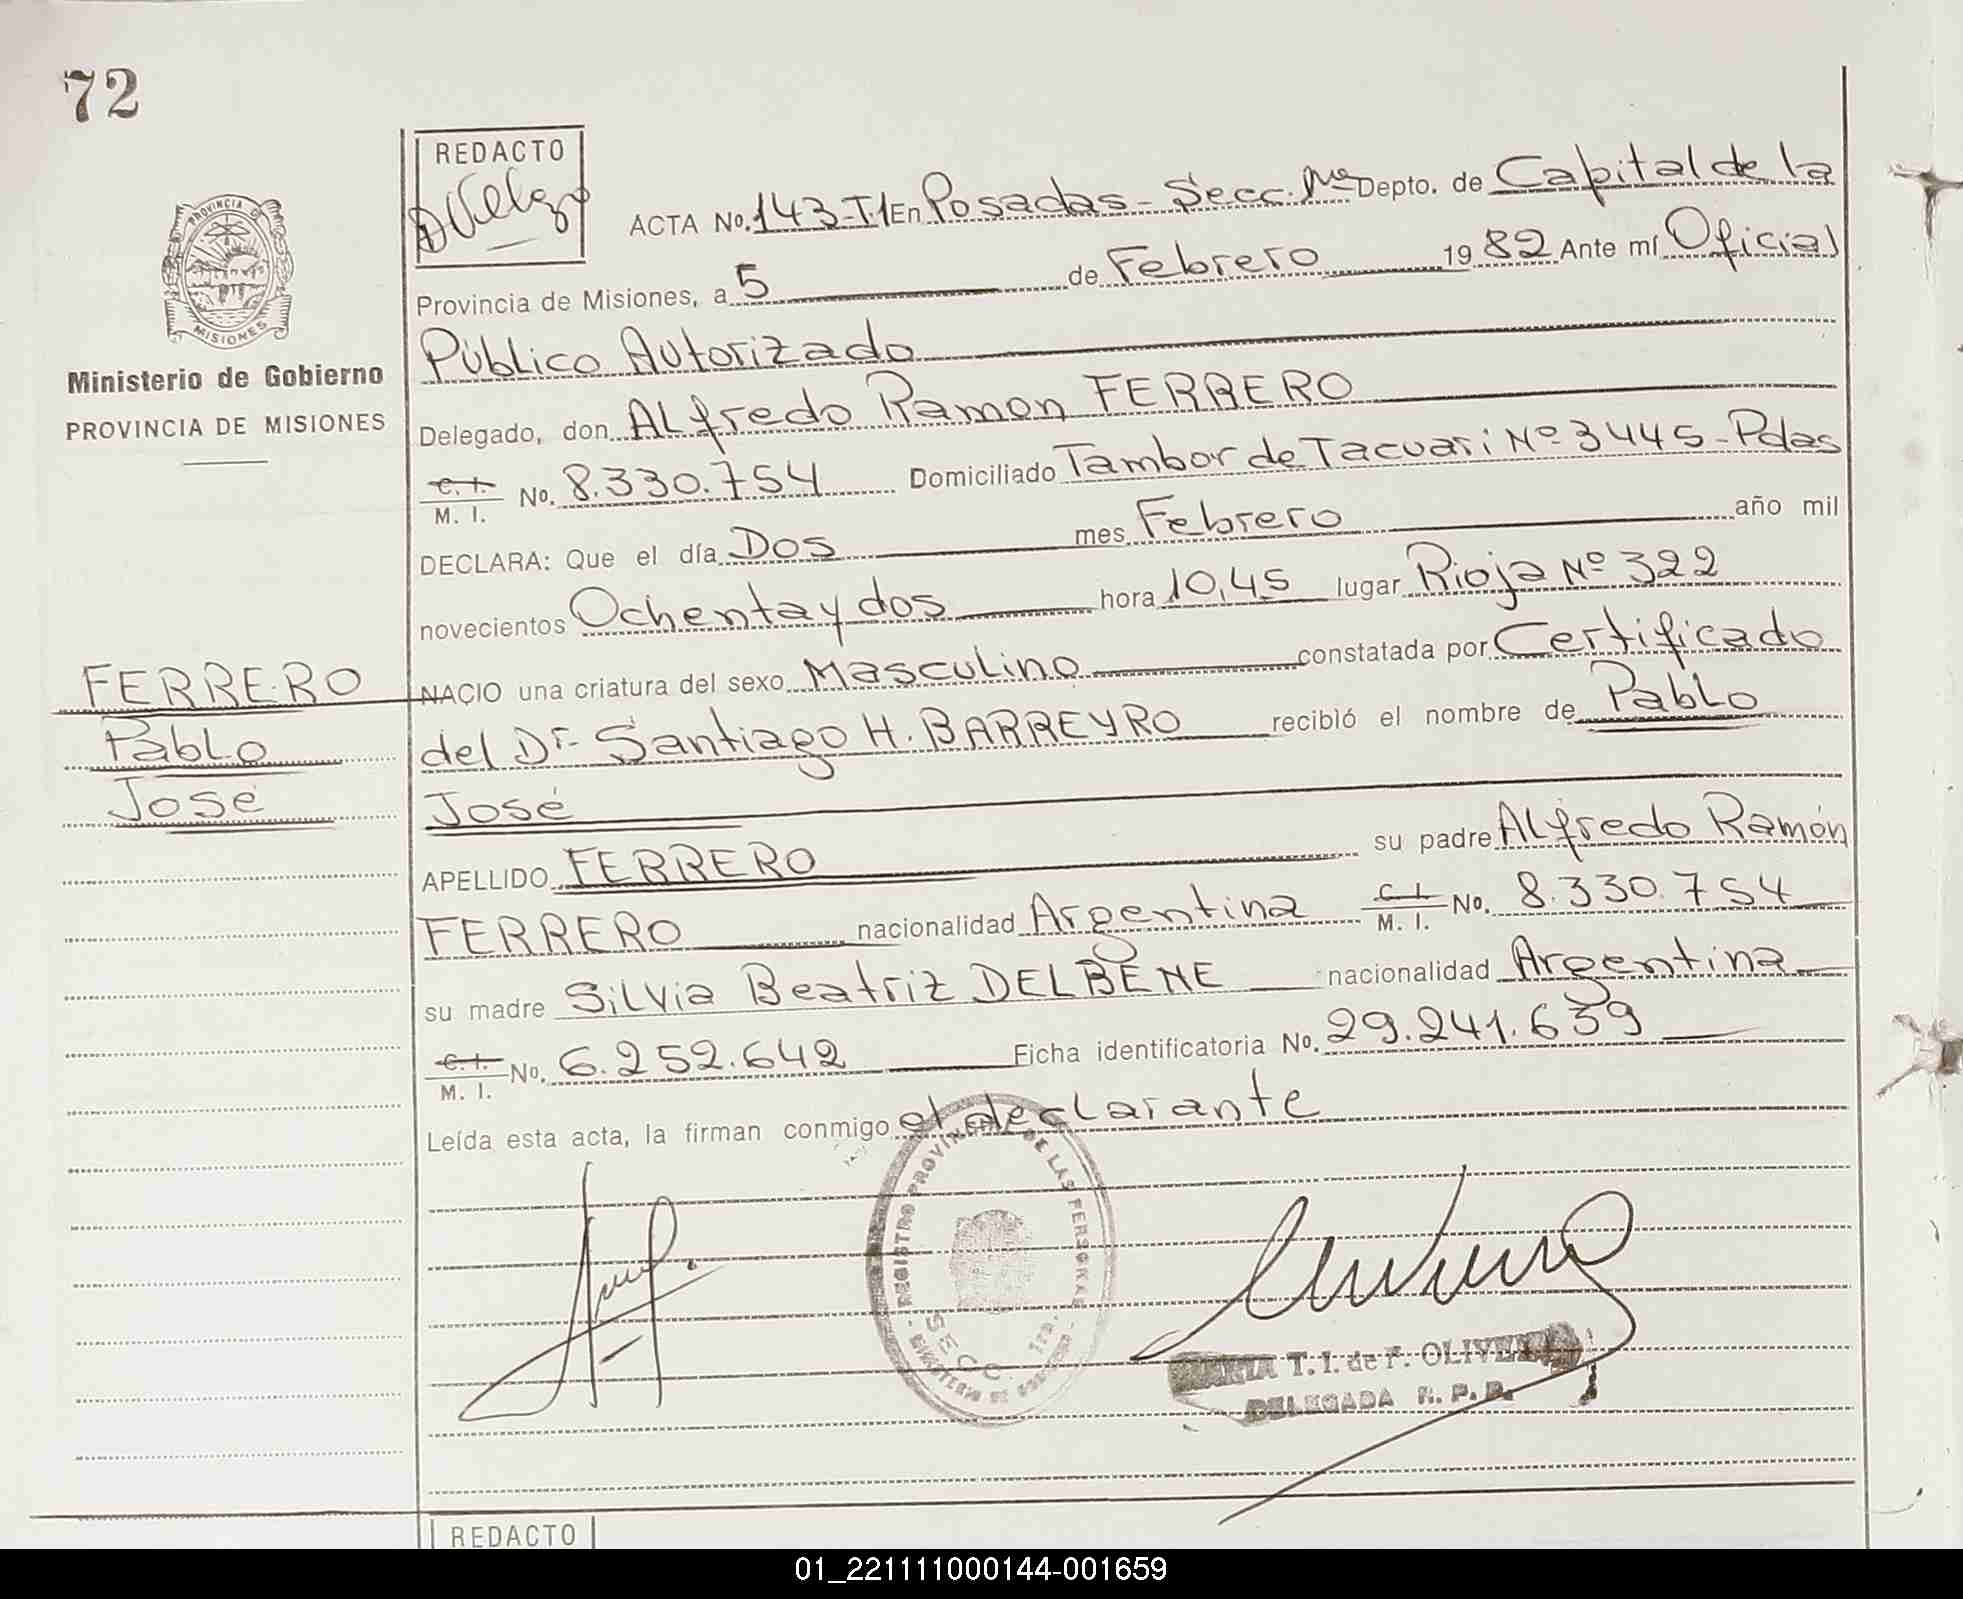 72
REDACTO
ACTA No. 143-T.1 En Posadas - Secc. 1ra Depto. de Capital de la
Provincia de Misiones, a 5 de Febrero 1982 Ante mí Oficial
Público Autorizado
PROVINCIA DE
MISIONES
Ministerio de Gobierno
PROVINCIA DE MISIONES
Delegado, don ALfredo Ramon FERRERO
C. I. / M. I. No. 8.330.754 Domiciliado Tambor de Tacuari Nº 3445 - Pdas
DECLARA: Que el día Dos mes Febrero año mil
novecientos Ochenta y dos hora 10,45 lugar Rioja Nº 322
NACIO una criatura del sexo Masculino constatada por Certificado
del Dr. Santiago H. BARREYRO recibió el nombre de Pablo
José
FERRERO
Pablo
José
APELLIDO FERRERO su padre ALfredo Ramón
FERRERO nacionalidad Argentina C. I. / M. I. No. 8.330.754
su madre Silvia Beatriz DELBENE nacionalidad Argentina
C. I. / M. I. No. 6.252.642 Ficha identificatoria No. 29.241.639
Leída esta acta, la firman conmigo el declarante
REGISTRO PROVINCIAL DE LAS PERSONAS
SECC. 1ra.
MARIA T. I. de F. OLIVEIRA
DELEGADA R. P. P.
REDACTO
01_221111000144-001659